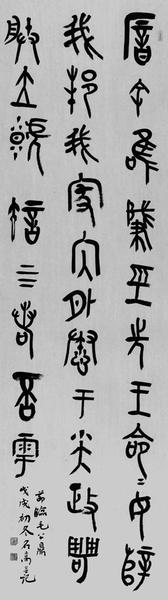 厝余唯肇巠先王命=女辥
我邦我家内外憃于小大政甹
朕立虩許上下若否雩
節臨毛公鼎
戊戌初冬石